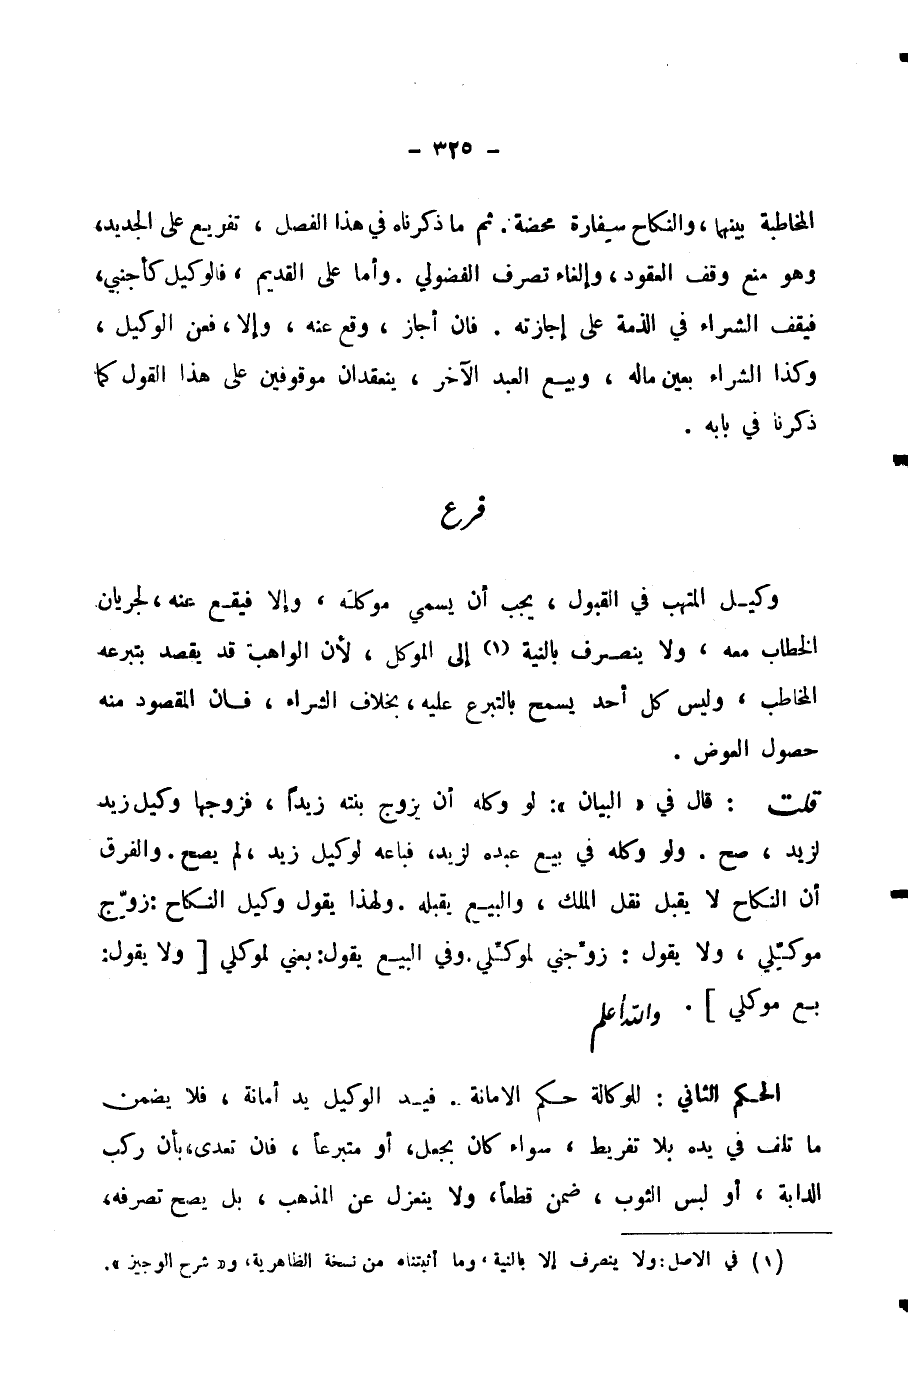 - ٣٢٥ -
المخاطبة بينها ، والنكاح سفارة محضة . ثم ما ذكرناه في هذا الفصل ، تفريع على الجديد،
وهو منع وقف العقود ، وإلغاء تصرف الفضولي . وأما على القديم ، فالوكيل كأجنبي،
فيقف الشراء في الذمة على إجازته . فان أجاز ، وقع عنه ، وإلا ، فعن الوكيل ،
وكذا الشراء بعين ماله ، وبيع العبد الآخر ، ينعقدان موقوفين على هذا القول كما
ذكرنا في بابه .
فرع
وكيل المتهب في القبول ، يجب أن يسمي موكله ، وإلا فيقع عنه ، لجريان
الخطاب معه ، ولا ينصرف بالنية (١) إلى الموكل ، لأن الواهب قد يقصد بتبرعه
المخاطب ، وليس كل أحد يسمح بالتبرع عليه ، بخلاف الشراء ، فان المقصود منه
حصول العوض .
قلت : قال في « البيان »: لو وكله أن يزوج بنته زيداً ، فزوجها وكيل زيد
لزيد ، صح . ولو وكله في بيع عبده لزيد، فباعه لوكيل زيد ، لم يصح . والفرق
أن النكاح لا يقبل نقل الملك ، والبيع يقبله . ولهذا يقول وكيل النكاح : زوّج
موكّلي ، ولا يقول : زوّجني لموكّلي . وفي البيع يقول: بعني لموكلي [ ولا يقول:
بع موكلي ] . والله أعلم
الحكم الثاني : للوكالة حكم الامانة . فيد الوكيل يد أمانة ، فلا يضمن
ما تلف في يده بلا تفريط ، سواء كان بجعل، أو متبرعاً ، فان تعدى، بأن ركب
الدابة ، أو لبس الثوب ، ضمن قطعاً، ولا ينعزل عن المذهب ، بل يصح تصرفه،
(١) في الاصل: ولا ينصرف إلا بالنية ، وما أثبتناه من نسخة الظاهرية، و« شرح الوجيز ».